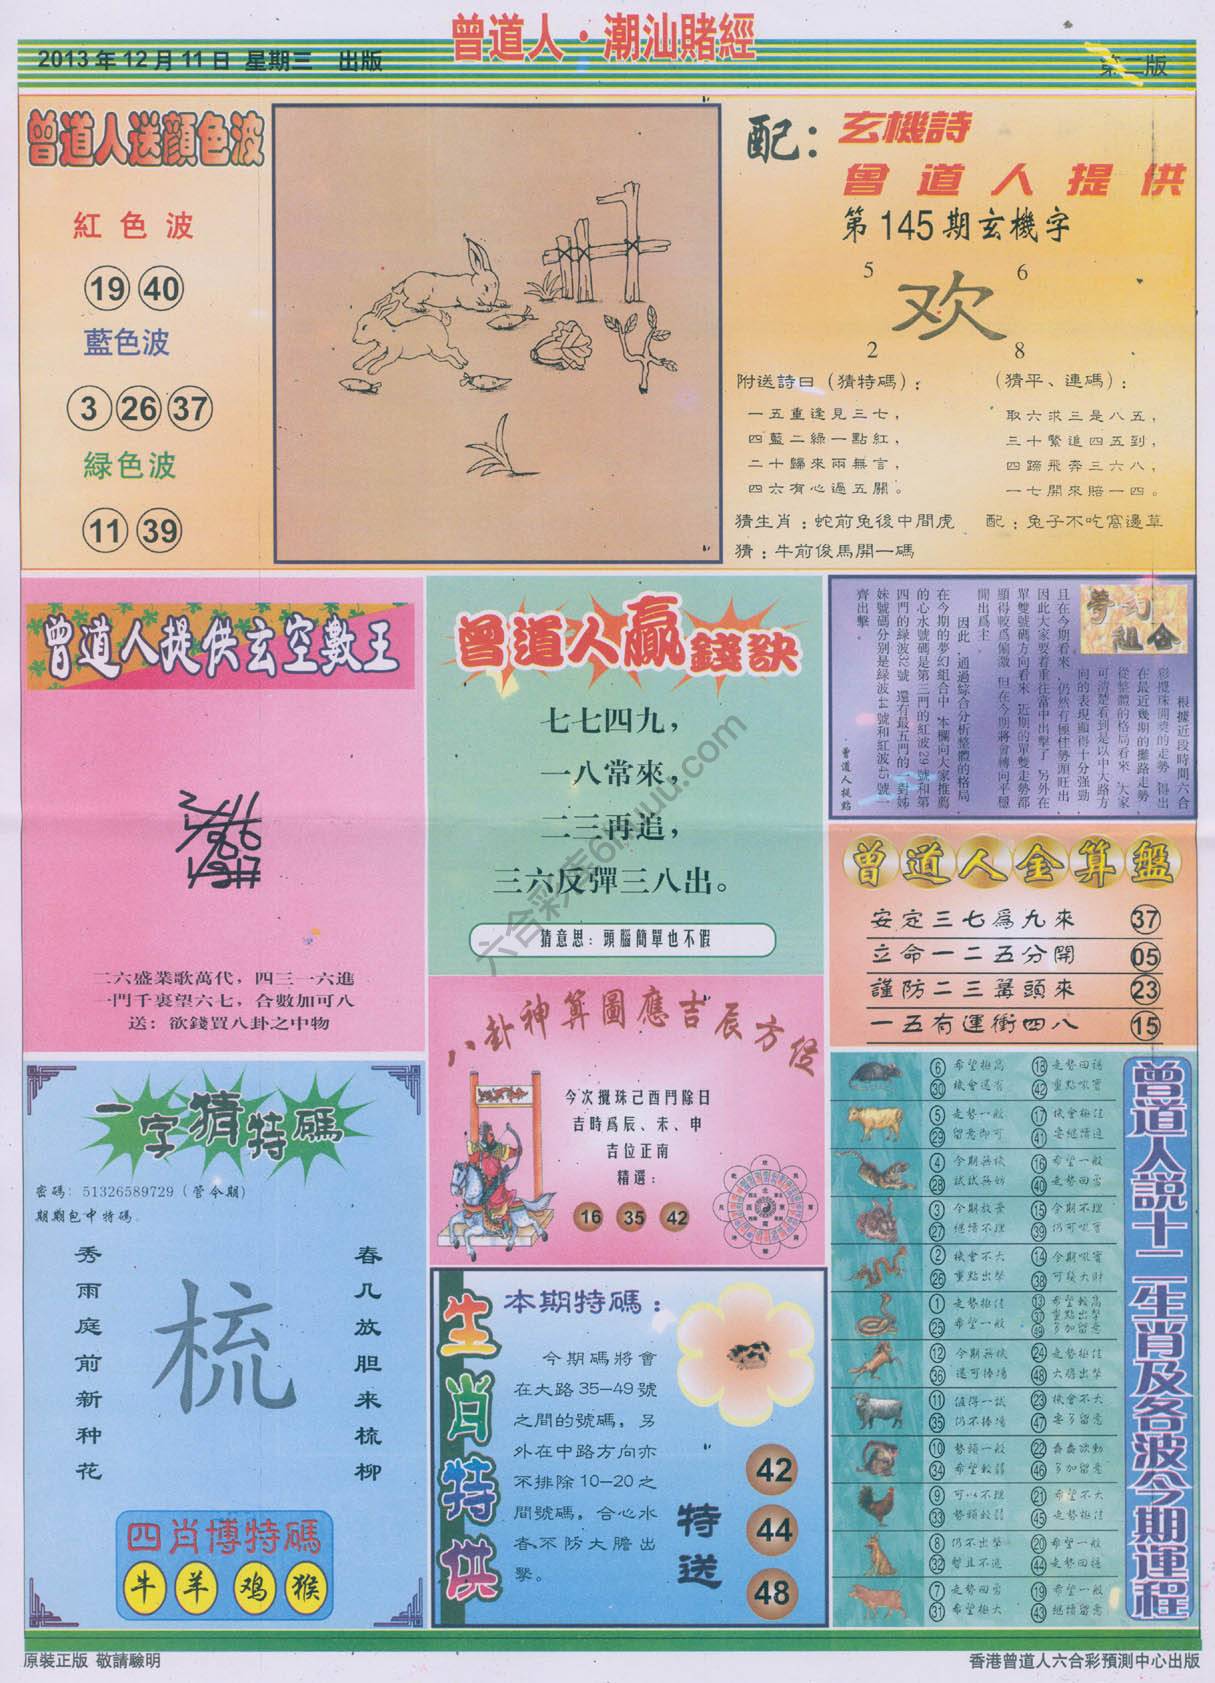 曾道人·潮汕賭經
2013年12月11日 星期三 出版
二版
曾道人送顔色波
紅色波
19 40
藍色波
3 26 37
緑色波
11 39
配：玄機詩
曾道人提供
第145期玄機字
5 6
欢
2 8
附送詩曰（猜特碼）：
一五重逢見三七，
四藍二綠一點紅，
二十歸來兩無言，
四六有心過五關。
（猜平、連碼）：
取六求三是八五，
三十緊追四五到，
四蹄飛奔三六八，
一七開來賠一四。
猜生肖：蛇前兔後中間虎 配：兔子不吃窩邊草
猜：牛前俊馬開一碼
曾道人提供玄空數王
二六盛業歌萬代，四三一六進
一門千裏望六七，合數加可八
送：欲錢買八卦之中物
曾道人贏錢訣
七七四九，
一八常來，
二三再追，
三六反彈三八出。
猜意思：頭腦簡單也不假
六合彩库6huuu.com
夢幻組合
根據近段時間六合
彩攪珠開獎的走勢，得出
在最近幾期的攤路走勢，
從整體的格局看來，大家
可清楚看到是以中大路方
向的表現顯得十分強勁，
且在今期看來，仍然有極佳勢頭旺出，
因此大家要看重往當中出擊了，另外在
單雙號碼方向看來，近期的單雙走勢都
顯得較爲偏激，但在今期將會轉向平穩
開出爲主。
因此，通過綜合分析整體的格局，
在今期的夢幻組合中，本欄向大家推薦
的心水號碼是第三門的紅波29號和第
四門的緑波32號，還有最五門的一對姊
妹號碼分别是緑波44號和紅波45號一
齊出擊。
曾道人提點
曾道人金算盤
安定三七爲九來 37
立命一二五分開 05
謹防二三籌頭來 23
一五有運衝四八 15
八卦神算圖應吉辰方位
今次攪珠己酉門除日
吉時爲辰、未、申
吉位正南
精選：
16 35 42
一字猜特碼
密碼：51326589729（管令期）
期期包中特碼。
秀雨庭前新种花
梳
春几放胆来梳柳
四肖博特碼
牛 羊 鸡 猴
生肖特供
本期特碼：
今期碼將會
在大路35—49號
之間的號碼，另
外在中路方向亦
不排除10—20之
間號碼，合心水
者不防大膽出
擊。
特送
42
44
48
曾道人説十二生肖及各波今期運程
6 希望極高 18 走勢回穩
30 機會還有 42 重點吼實
5 走勢一般 17 機會極佳
29 留意即可 41 要繼續追
4 今期無俠 16 希望一般
28 試試無妨 40 走勢回勇
3 今期放棄 15 今期不理
27 繼續不理 39 仍可吼實
2 機會不大 14 今期吼實
26 重點出擊 38 可發大財
1 走勢極佳 13 希望較高
25 希望一般 37 重點出擊
49 多加留意
12 今期無俠 24 走勢極佳
36 還可捧場 48 大膽出擊
11 值得一試 23 機會不大
35 仍不捧場 47 要多留意
10 勢頭一般 22 蠢蠢欲動
34 希望較弱 46 多加留意
9 可以不理 21 希望不大
33 勢頭較弱 45 走勢極佳
8 仍不出擊 20 希望一般
32 暫且不追 44 走勢回穩
7 走勢回勇 19 希望一般
31 希望極大 43 繼續留意
原裝正版 敬請驗明
香港曾道人六合彩預測中心出版